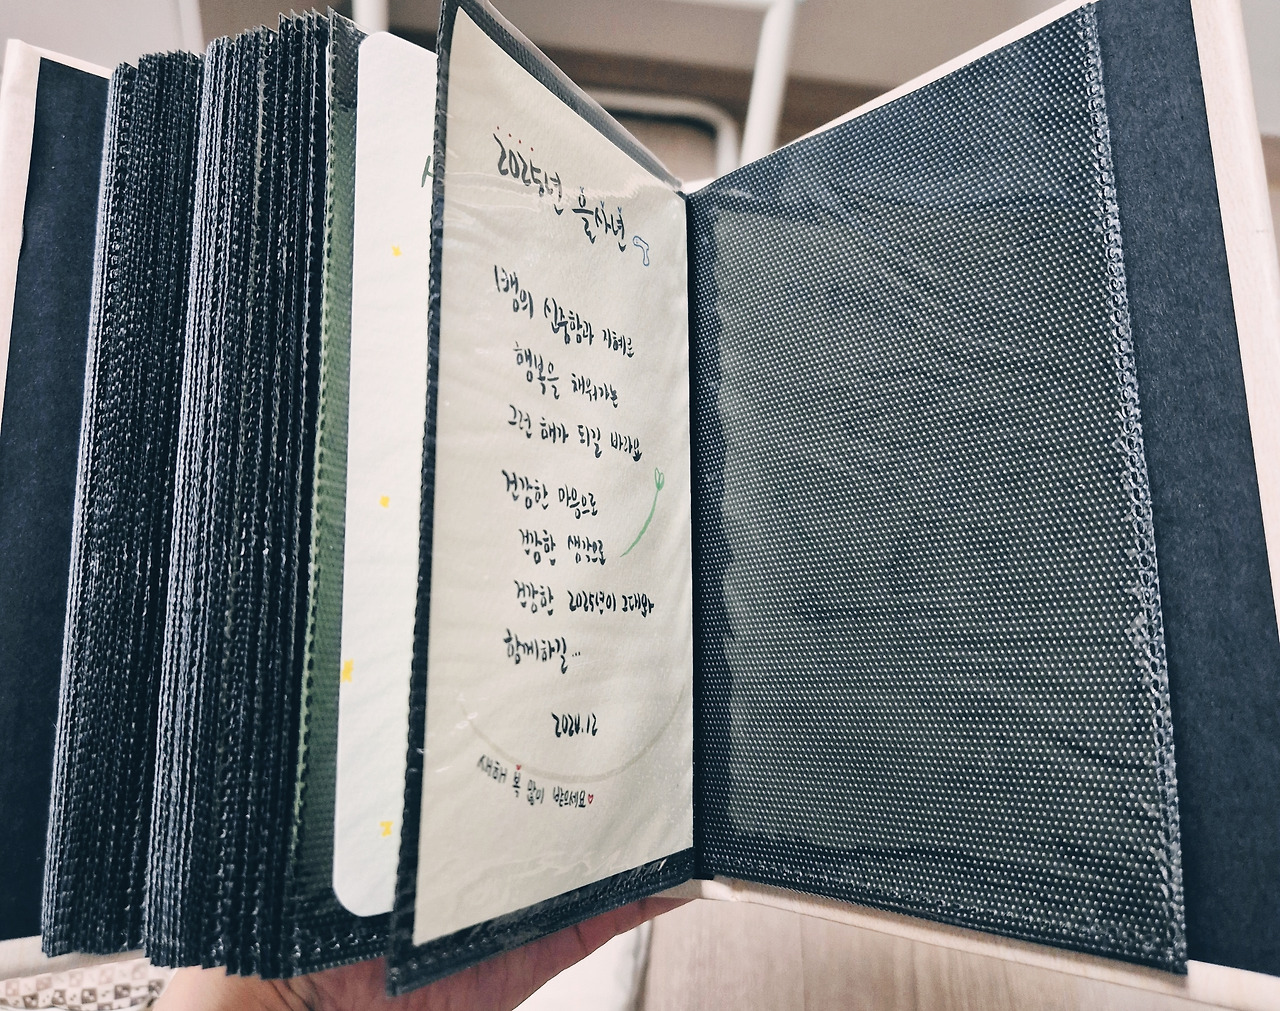 2025년 을사년
뱀의 신중함과 지혜로
행복을 채워가는
그런 해가 되길 바라요
건강한 마음으로
건강한 생각으로
건강한 2025년이 그대와
함께하길...
2024.12
새해 복 많이 받으세요